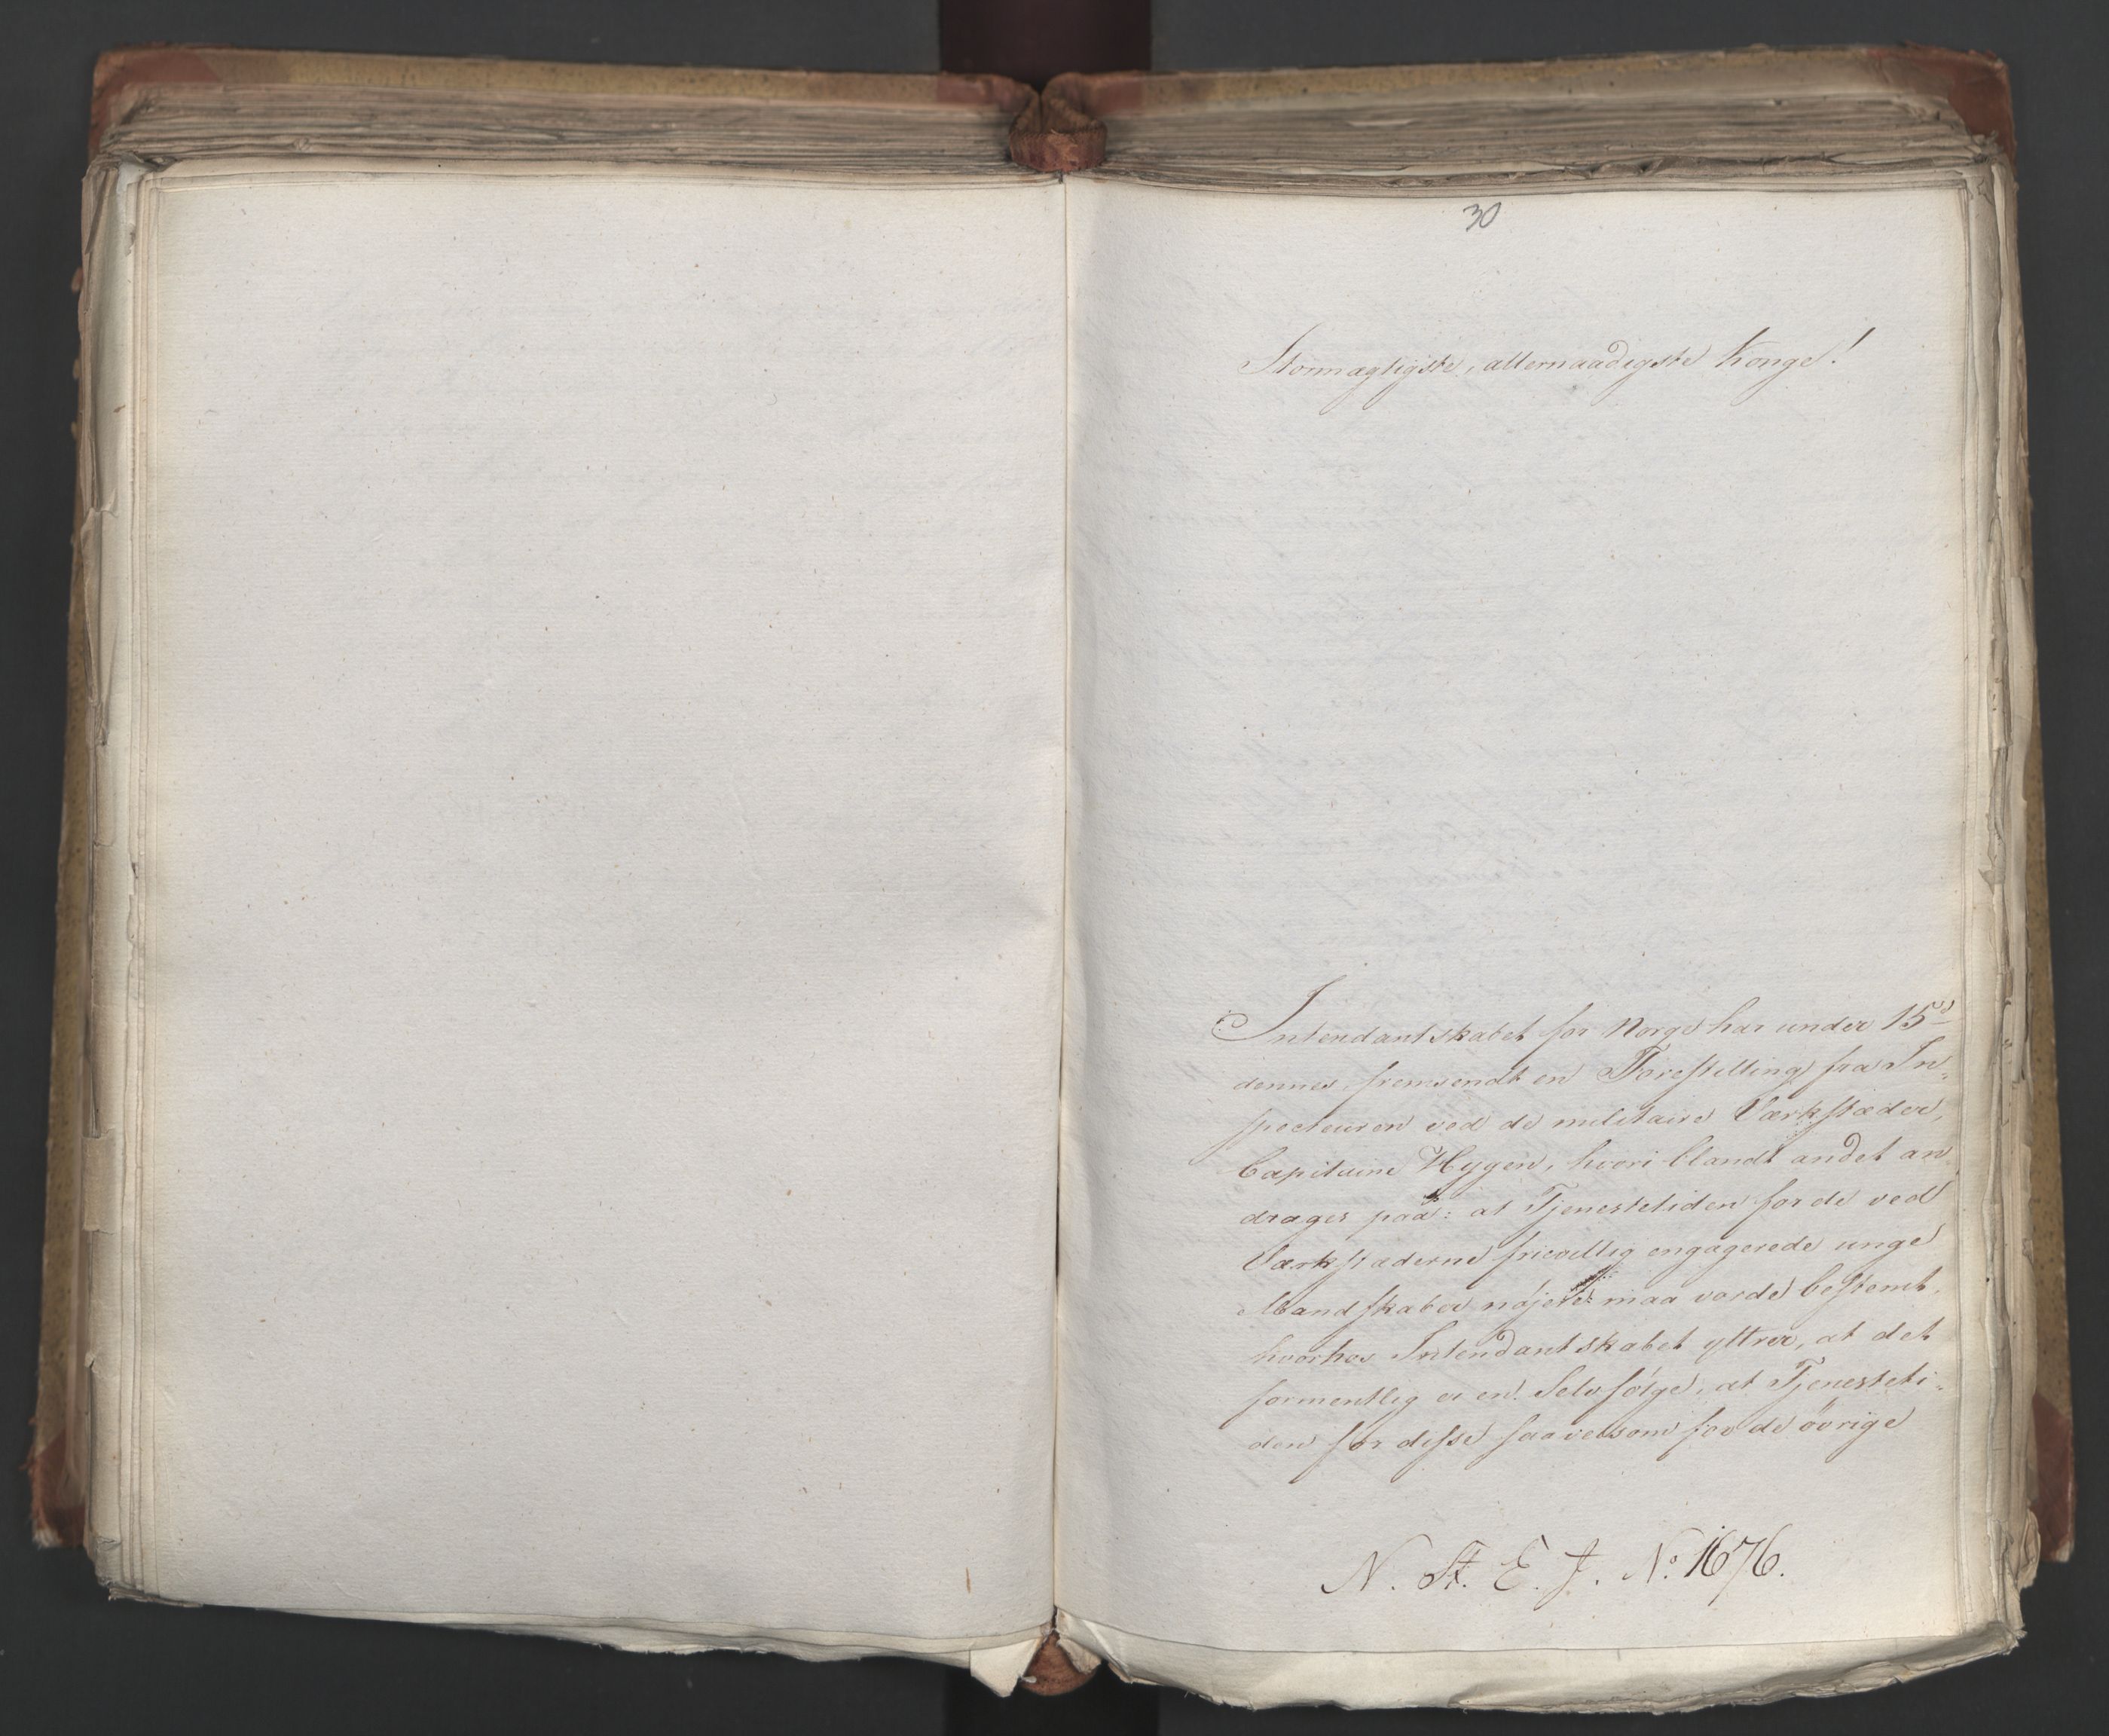 30
Stormægtigste, allernaadigste Konge!
Intendantskabet for Norge har under 15d
dennes, fremsendt en Forestilling fra In-
specteuren ved de militaire Værkstæder,
Capitaine Hygen, hvori blandt andet an
drages paa: at Tjenestetiden for de ved
Værkstæderne frievillig engagerede unge
Mandskaber nøjere maa vorde bestemt,
hvorhos Intendantskabet yttrer, at det
formentlig er en Selvfølge, at Tjenesteti-
den for disse saavelsom for de øvrige
N. St. E. J. No. 1676.